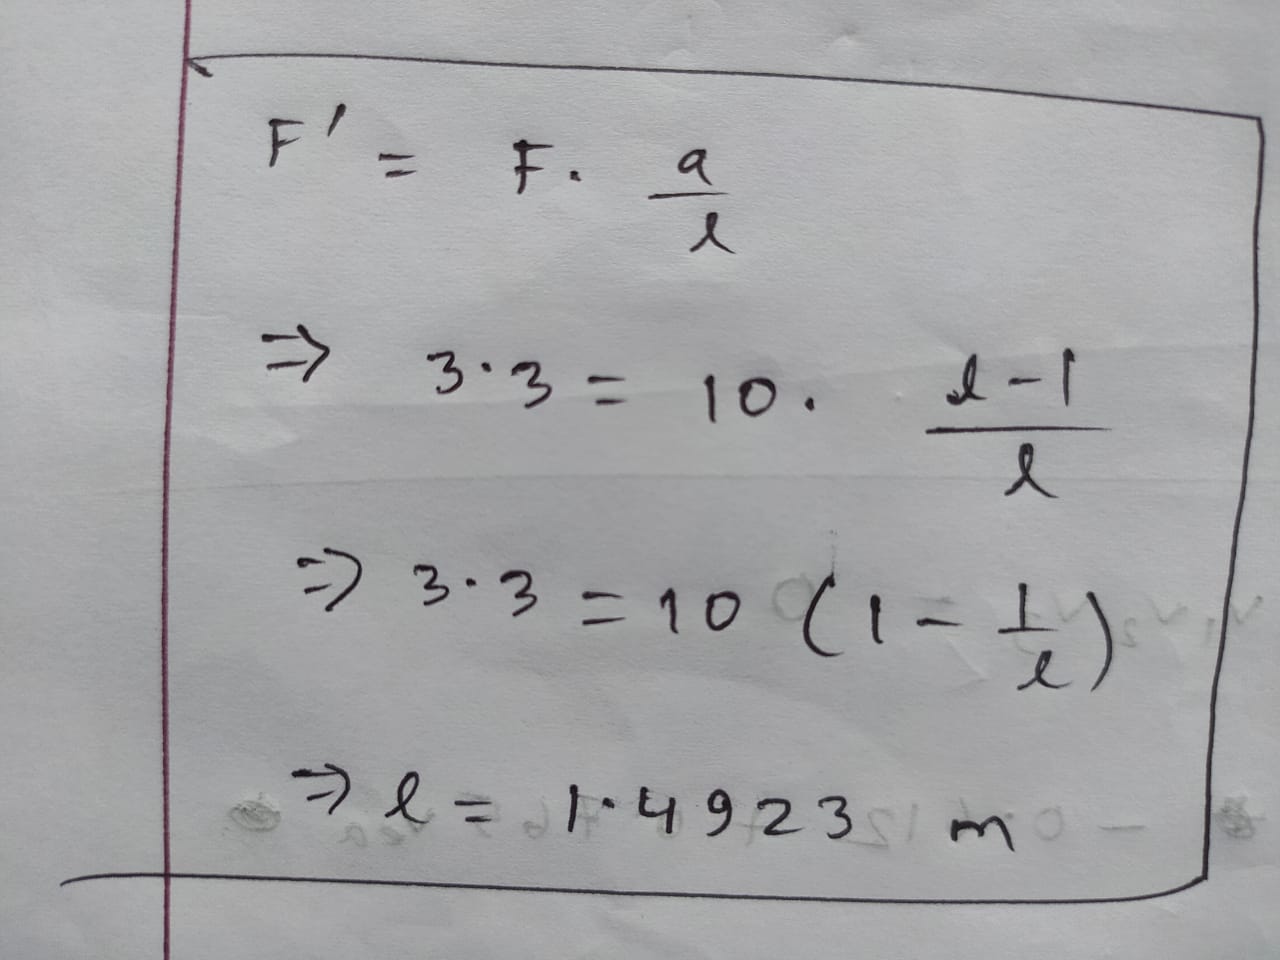 F' = F. a/l
⇒ 3.3 = 10. l-1/l
⇒ 3.3 = 10 (1 - 1/l)
⇒ l = 1.4923 m